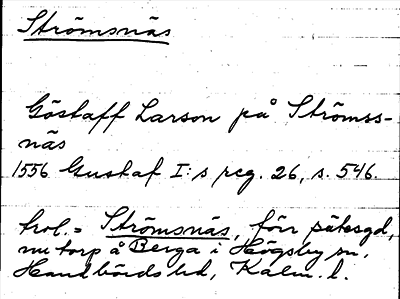 Strömsnäs
Göstaff Larson på Strömss-
näs
1556 Gustaf I:s reg. 26, s. 546.
trol. = Strömsnäs, förr sätesgd,
nu torp å Berga i Högsby sn,
Handbörds hd, Kalm. l.